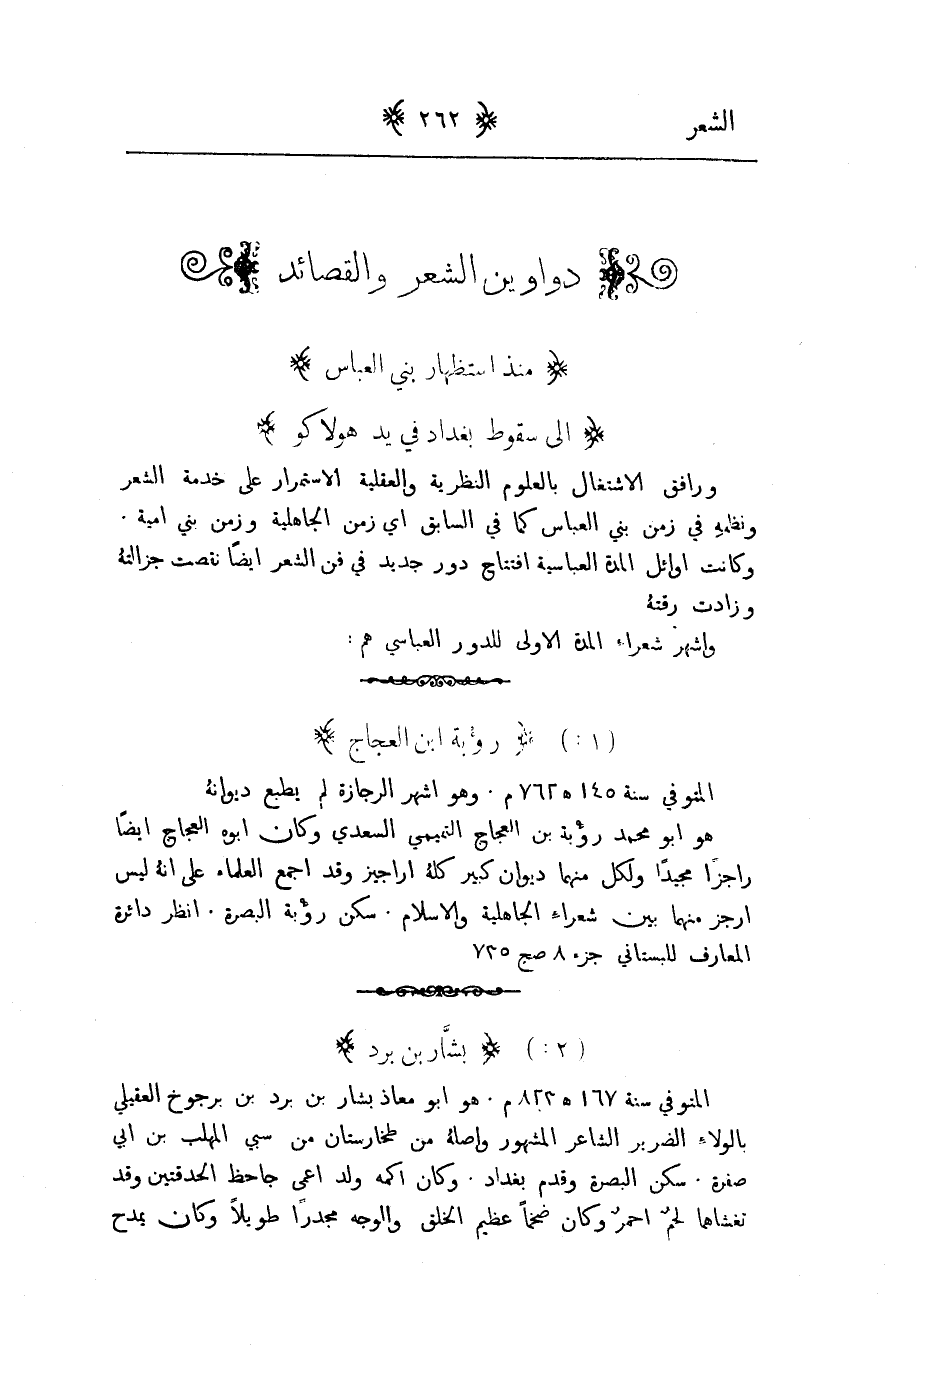 الشعر ﴿ ٢٦٢ ﴾
دواوين الشعر والقصائد
﴿ منذ استظهار بني العباس ﴾
﴿ الى سقوط بغداد في يد هولاكو ﴾
ورافق الاشتغال بالعلوم النظرية والعقلية الاستمرار على خدمة الشعر
ونظمهِ في زمن بني العباس كما في السابق اي زمن الجاهلية وزمن بني امية ·
وكانت اوائل المدة العباسية افتتاح دور جديد في فن الشعر ايضًا نقصت جزالتهُ
وزادت رقتهُ
واشهر شعراء المدة الاولى للدور العباسي هم :
(١:) ﴿ رؤبة ابن العجاج ﴾
المتوفي سنة ١٤٥ ه ٧٦٢ م · وهو اشهر الرجازة لم يطبع ديوانهُ
هو ابو محمد رؤبة بن العجاج التميمي السعدي وكان ابوه العجاج ايضًا
راجزًا مجيدًا ولكل منهما ديوان كبير كلهُ اراجيز وقد اجمع العلماء على انهُ ليس
ارجز منهما بين شعراء الجاهلية والاسلام · سكن رؤبة البصرة · انظر دائرة
المعارف للبستاني جزء ٨ صح ٧٢٥
(٢:) ﴿ بشَّار بن برد ﴾
المتوفي سنة ١٦٧ ه م · هو ابو معاذ بشار بن برد بن برجوخ العقيلي
بالولاء الضرير الشاعر المشهور واصلهُ من طخارستان من سبي المهلب بن ابي
صفرة · سكن البصرة وقدم بغداد · وكان اكمه ولد اعمى جاحظ الحدقتين وقد
تغشاها لحمٌ احمرٌ وكان ضخماً عظيم الخلق والوجه مجدرًا طويلاً وكان يمدح